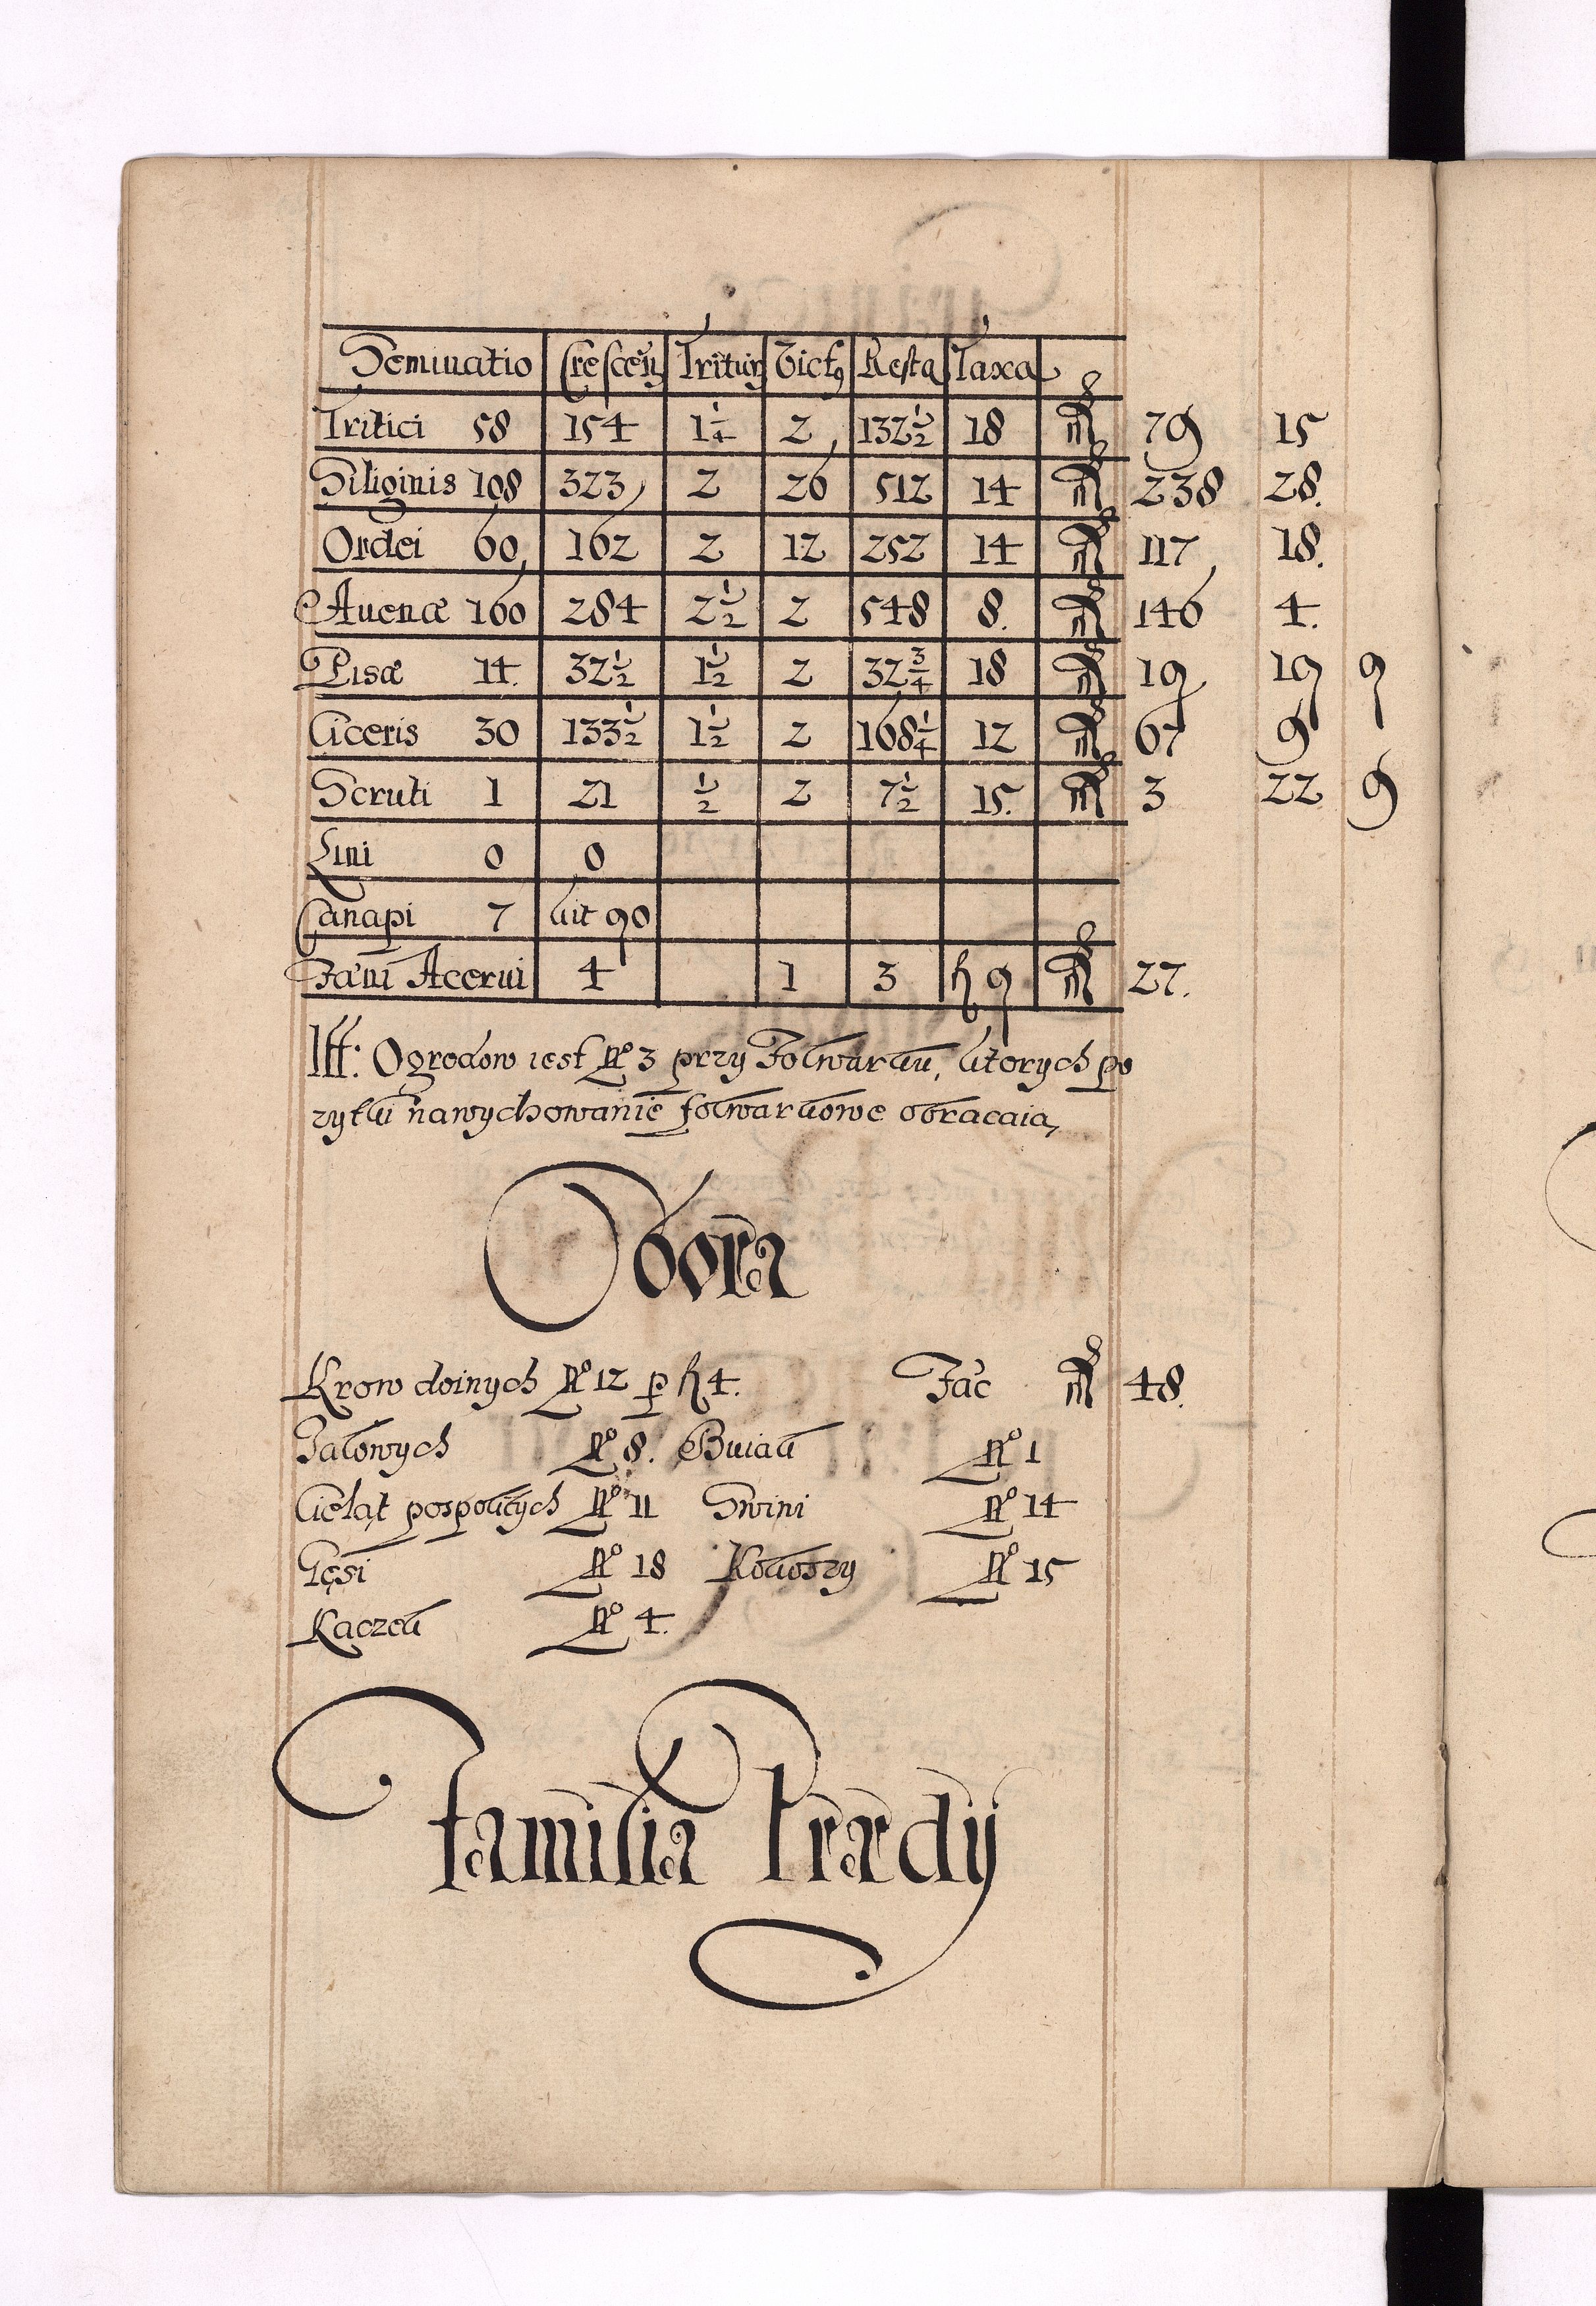 Seminatio Crescen Tritur Vict9 Resta Taxa
Tritici 58 154 1 1/4 2 132 1/2 18 79 15
Siliginis 108 323 2 26 512 14 238 28.
Ordei 60 162 2 12 252 14 117 18.
Auenæ 160 284 2 1/2 2 548 8. 146 4.
Pisæ 14. 32 1/2 1 1/2 2 32 3/4 18 19 19 9
Ciceris 30 133 1/2 1 1/2 2 168 1/4 12 67 9
Scruti 1 21 1/2 2 7 1/2 15. 3 22 9
Lini 0 0
Canapi 7 kit 90
Fæni Acerui 4 1 3 fl 9 27.
Itt: Ogrodow iest No 3 przy Folwarku, ktorych po
zytki na wychowanie folwarkowe obracaią
Obora
Krow doinych No 12 p fl 4. Fac 48.
Jalowych No 8. Buiak No 1
Cieląt pospolitych No 11 Swini No 14
Gęsi No 18 Kokoszy No 15
Kaczek No 4.
Familia Prædij